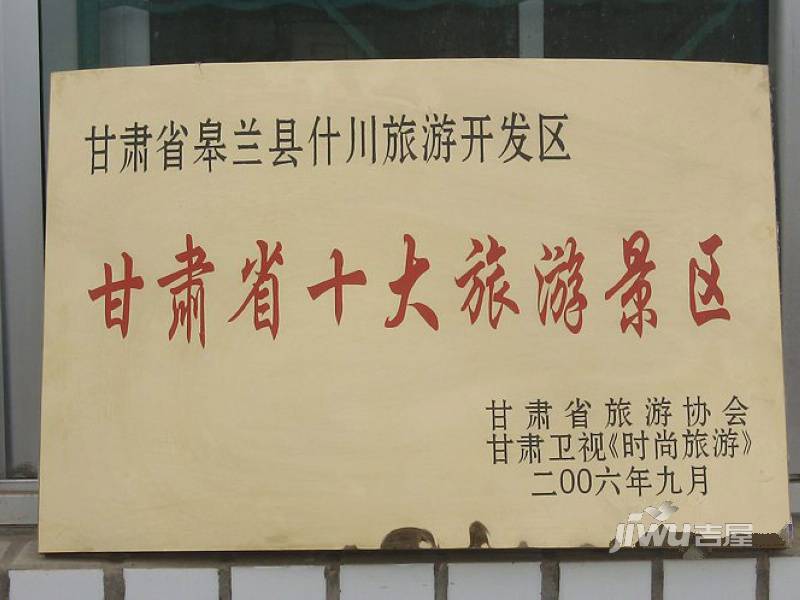 甘肃省皋兰县什川旅游开发区
甘肃省十大旅游景区
甘肃省旅游协会
甘肃卫视《时尚旅游》
二00六年九月
jiwu吉屋